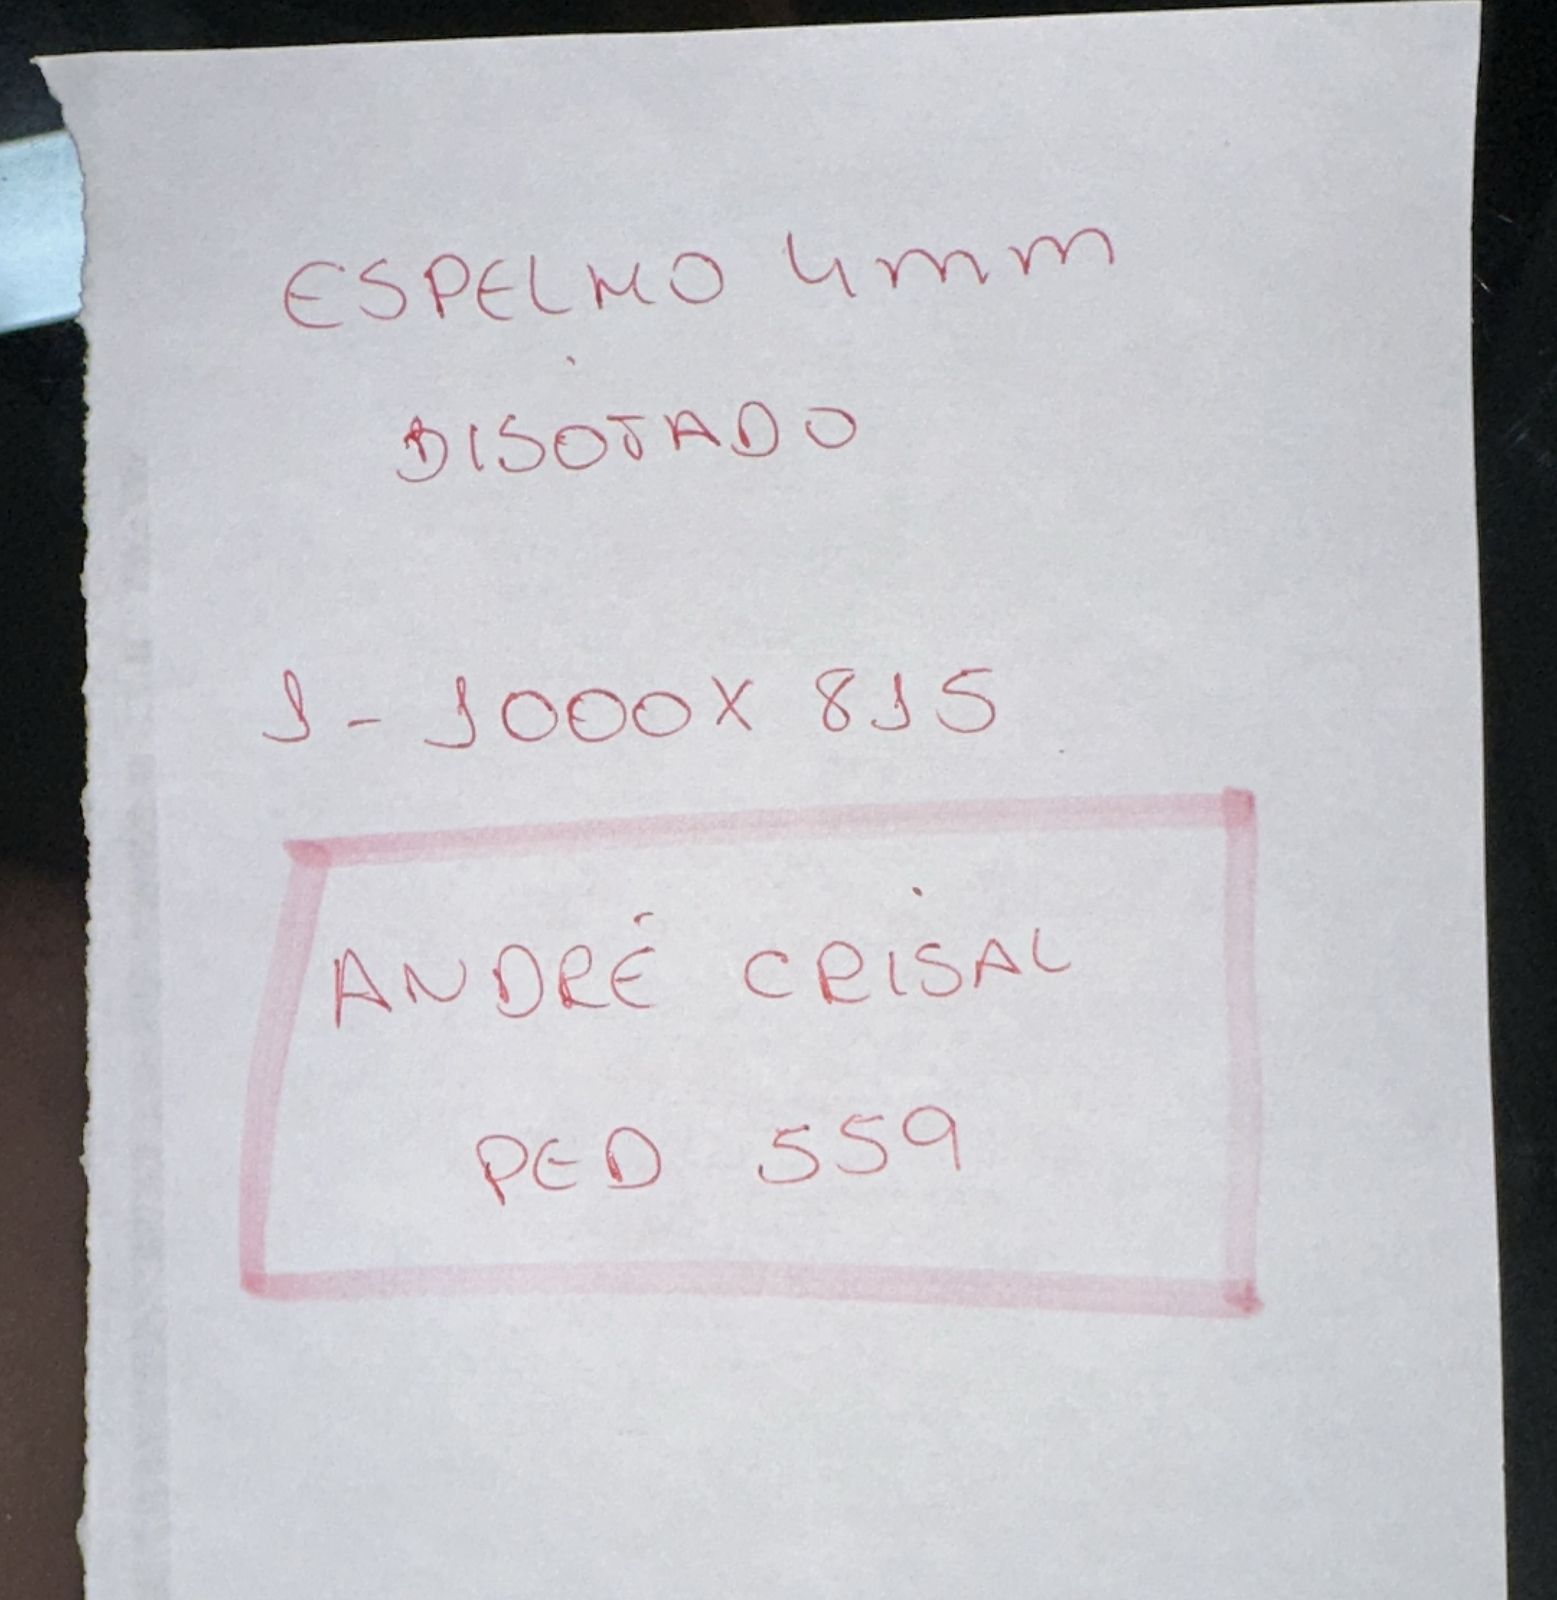 ESPELHO 4mm
BISOTADO
1 - 1000X 815
ANDRÉ CRISAL
PED 559